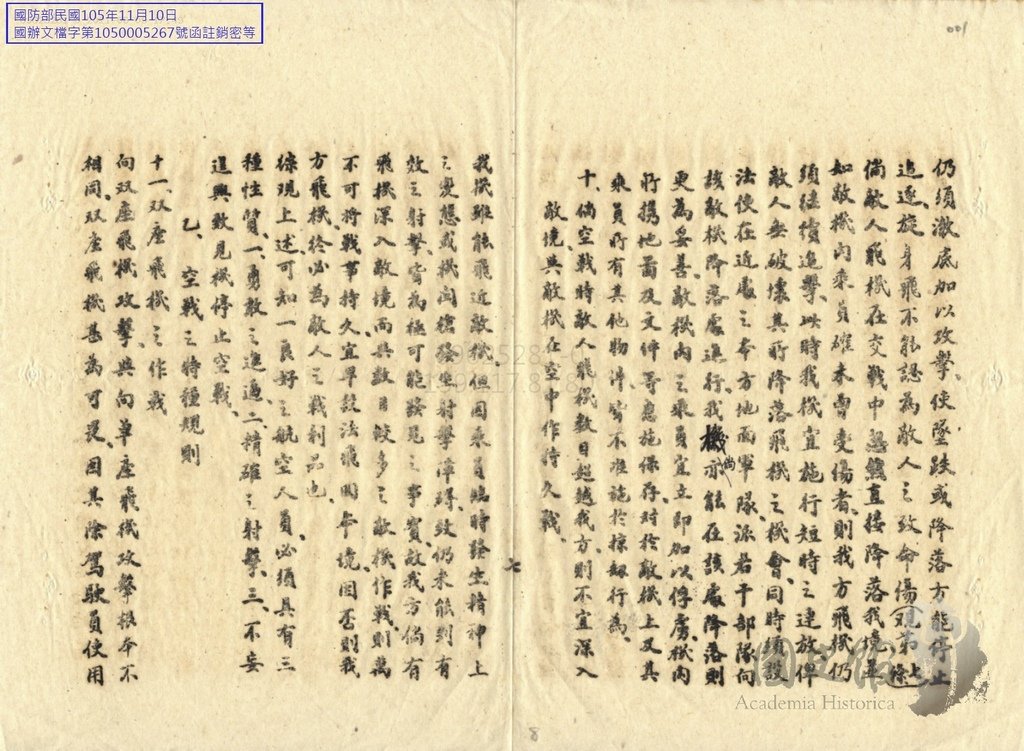 國防部民國105年11月10日
國辦文檔字第1050005267號函註銷密等
001
仍須澈底加以攻擊、使墜跌或降落方能停止
追逐、旋身飛不能認為敵人之致命傷(視第七條)
倘敵人飛機在交戰中無熊直接降落我境並
如敵機內乘員確未曾受傷者、則我方飛機仍
須繼續追擊、此時我機宜施行短時之連放俾
敵人無破壞其所降落飛機之機會、同時須設
法使在近處之本方地面軍隊派若干部隊向
該敵機降落處進行、我機亦尚能在該處降落則
更為妥善、敵機內之乘員宜立即加以俘虜、機內
所攜地圖及文件等悉施保存、對於敵機上及其
乘員所有其他物件、皆不准施於掠奪行為、
十、倘空戰時敵人飛機數目超越我方、則不宜深入
敵境與敵機在空中作持久戰、
七
我機雖能飛近敵機、但因乘員臨時發生精神上
之變態或機關槍發生射擊障碍、致仍未能判有
效之射擊、皆為極可能發見之事實、故我方倘有
飛機深入敵境而與敵目較多之敵機作戰、則萬
不可將戰事持久、宜早設法飛回本境、因否則我
方飛機、終必為敵人之戰利品也、
綜現上述、可知一良好之航空人員、必須具有三
種性質、一、勇敢之進逼、二、精確之射擊、三、不妄
逞興致見機停止空戰、
乙、空戰之特種規則
十一、双座飛機之作戰
向双座飛機攻擊、與向單座飛機攻擊根本不
相同、双座飛機甚為可畏、因其除駕駛員使用
8
國史館
Academia Historica